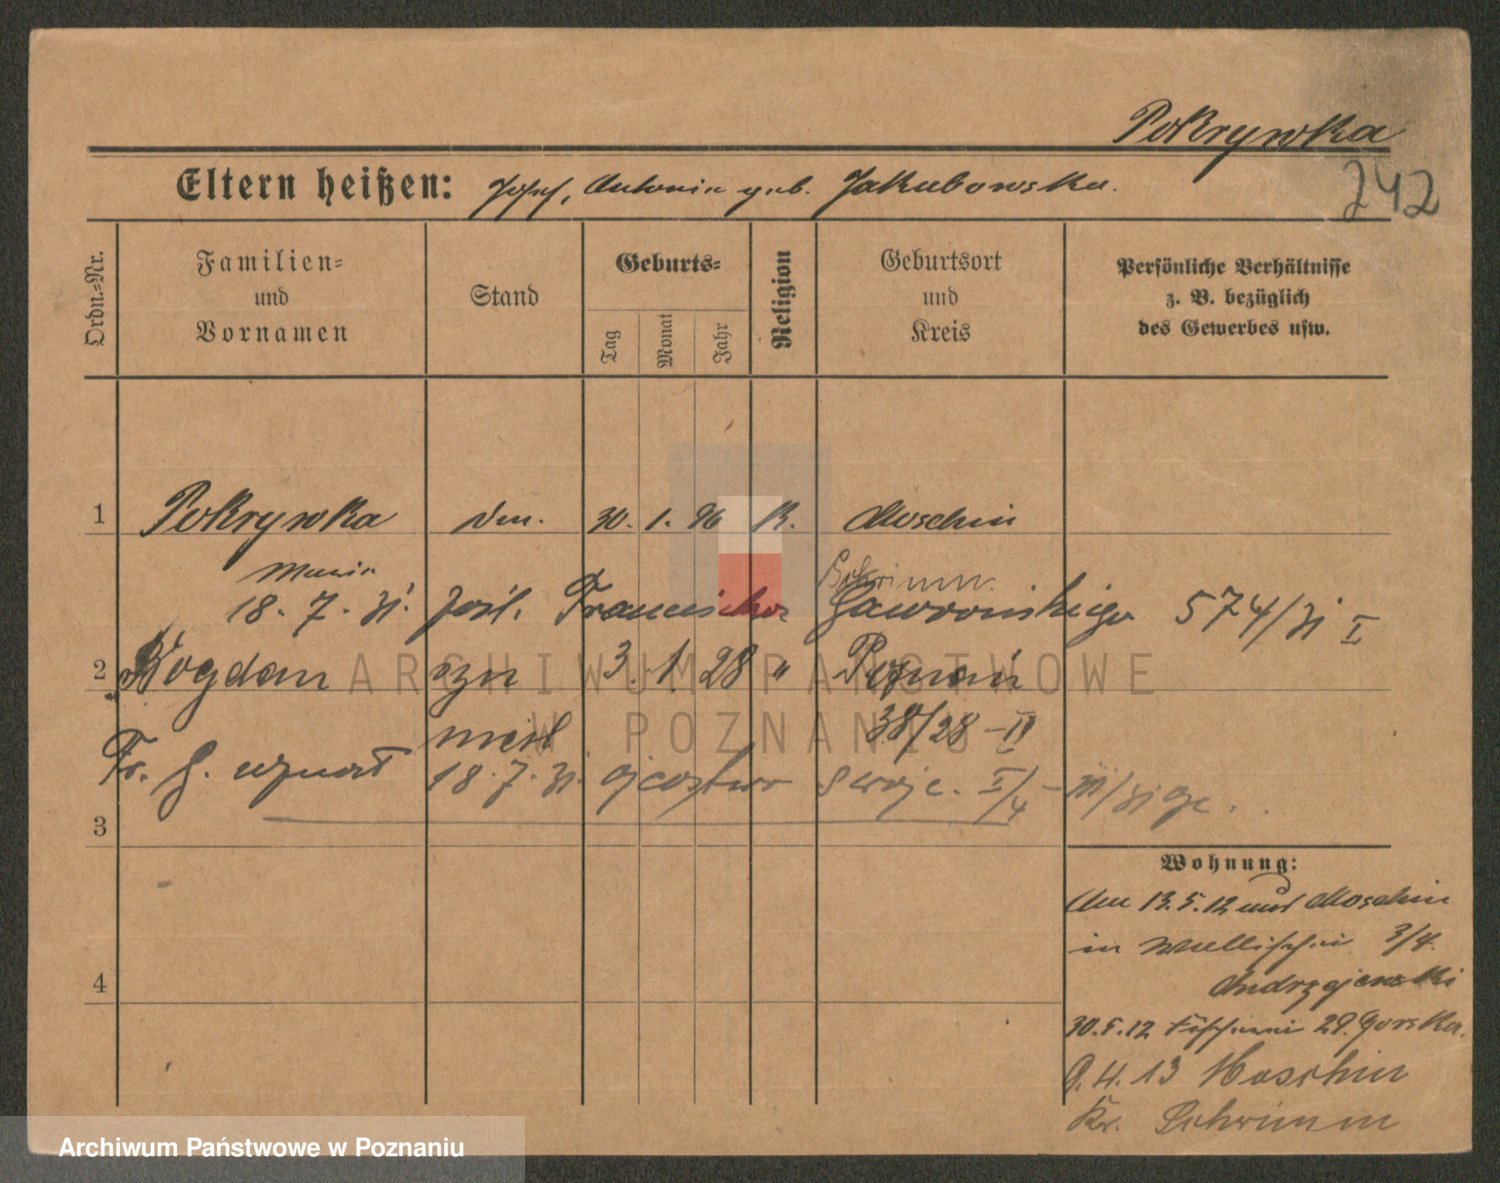 Pokrywka
242
Eltern heißen: Josef, Antonia geb. Jakubowska.
Ordn.-Nr.
Familien- und Vornamen
Stand
Geburts-
Tag
Monat
Jahr
Religion
Geburtsort und Kreis
Persönliche Verhältnisse z. B. bezüglich des Gewerbes usw.
1 Pokrywka 30. 1. 96 K. Moschin
Maria Schrimm.
18. 7. 31. Franciszka Gaworońskiego 574/31 I
2 Bogdan syn 3. 1. 28 " Poznań
38/28 - II
Fr. G. uznał 18. 7. 31. ojcostwo swoje. I/4 - III/31
3
4
Wohnung:
Am 13.5.12 aus Moschin
in Wallischei 3/4.
Andrzejewski
30.5.12 Fischerei 29. Gorska.
9.4.13 Moschin
Kr. Schrimm
ARCHIWUM PAŃSTWOWE
W POZNANIU
Archiwum Państwowe w Poznaniu